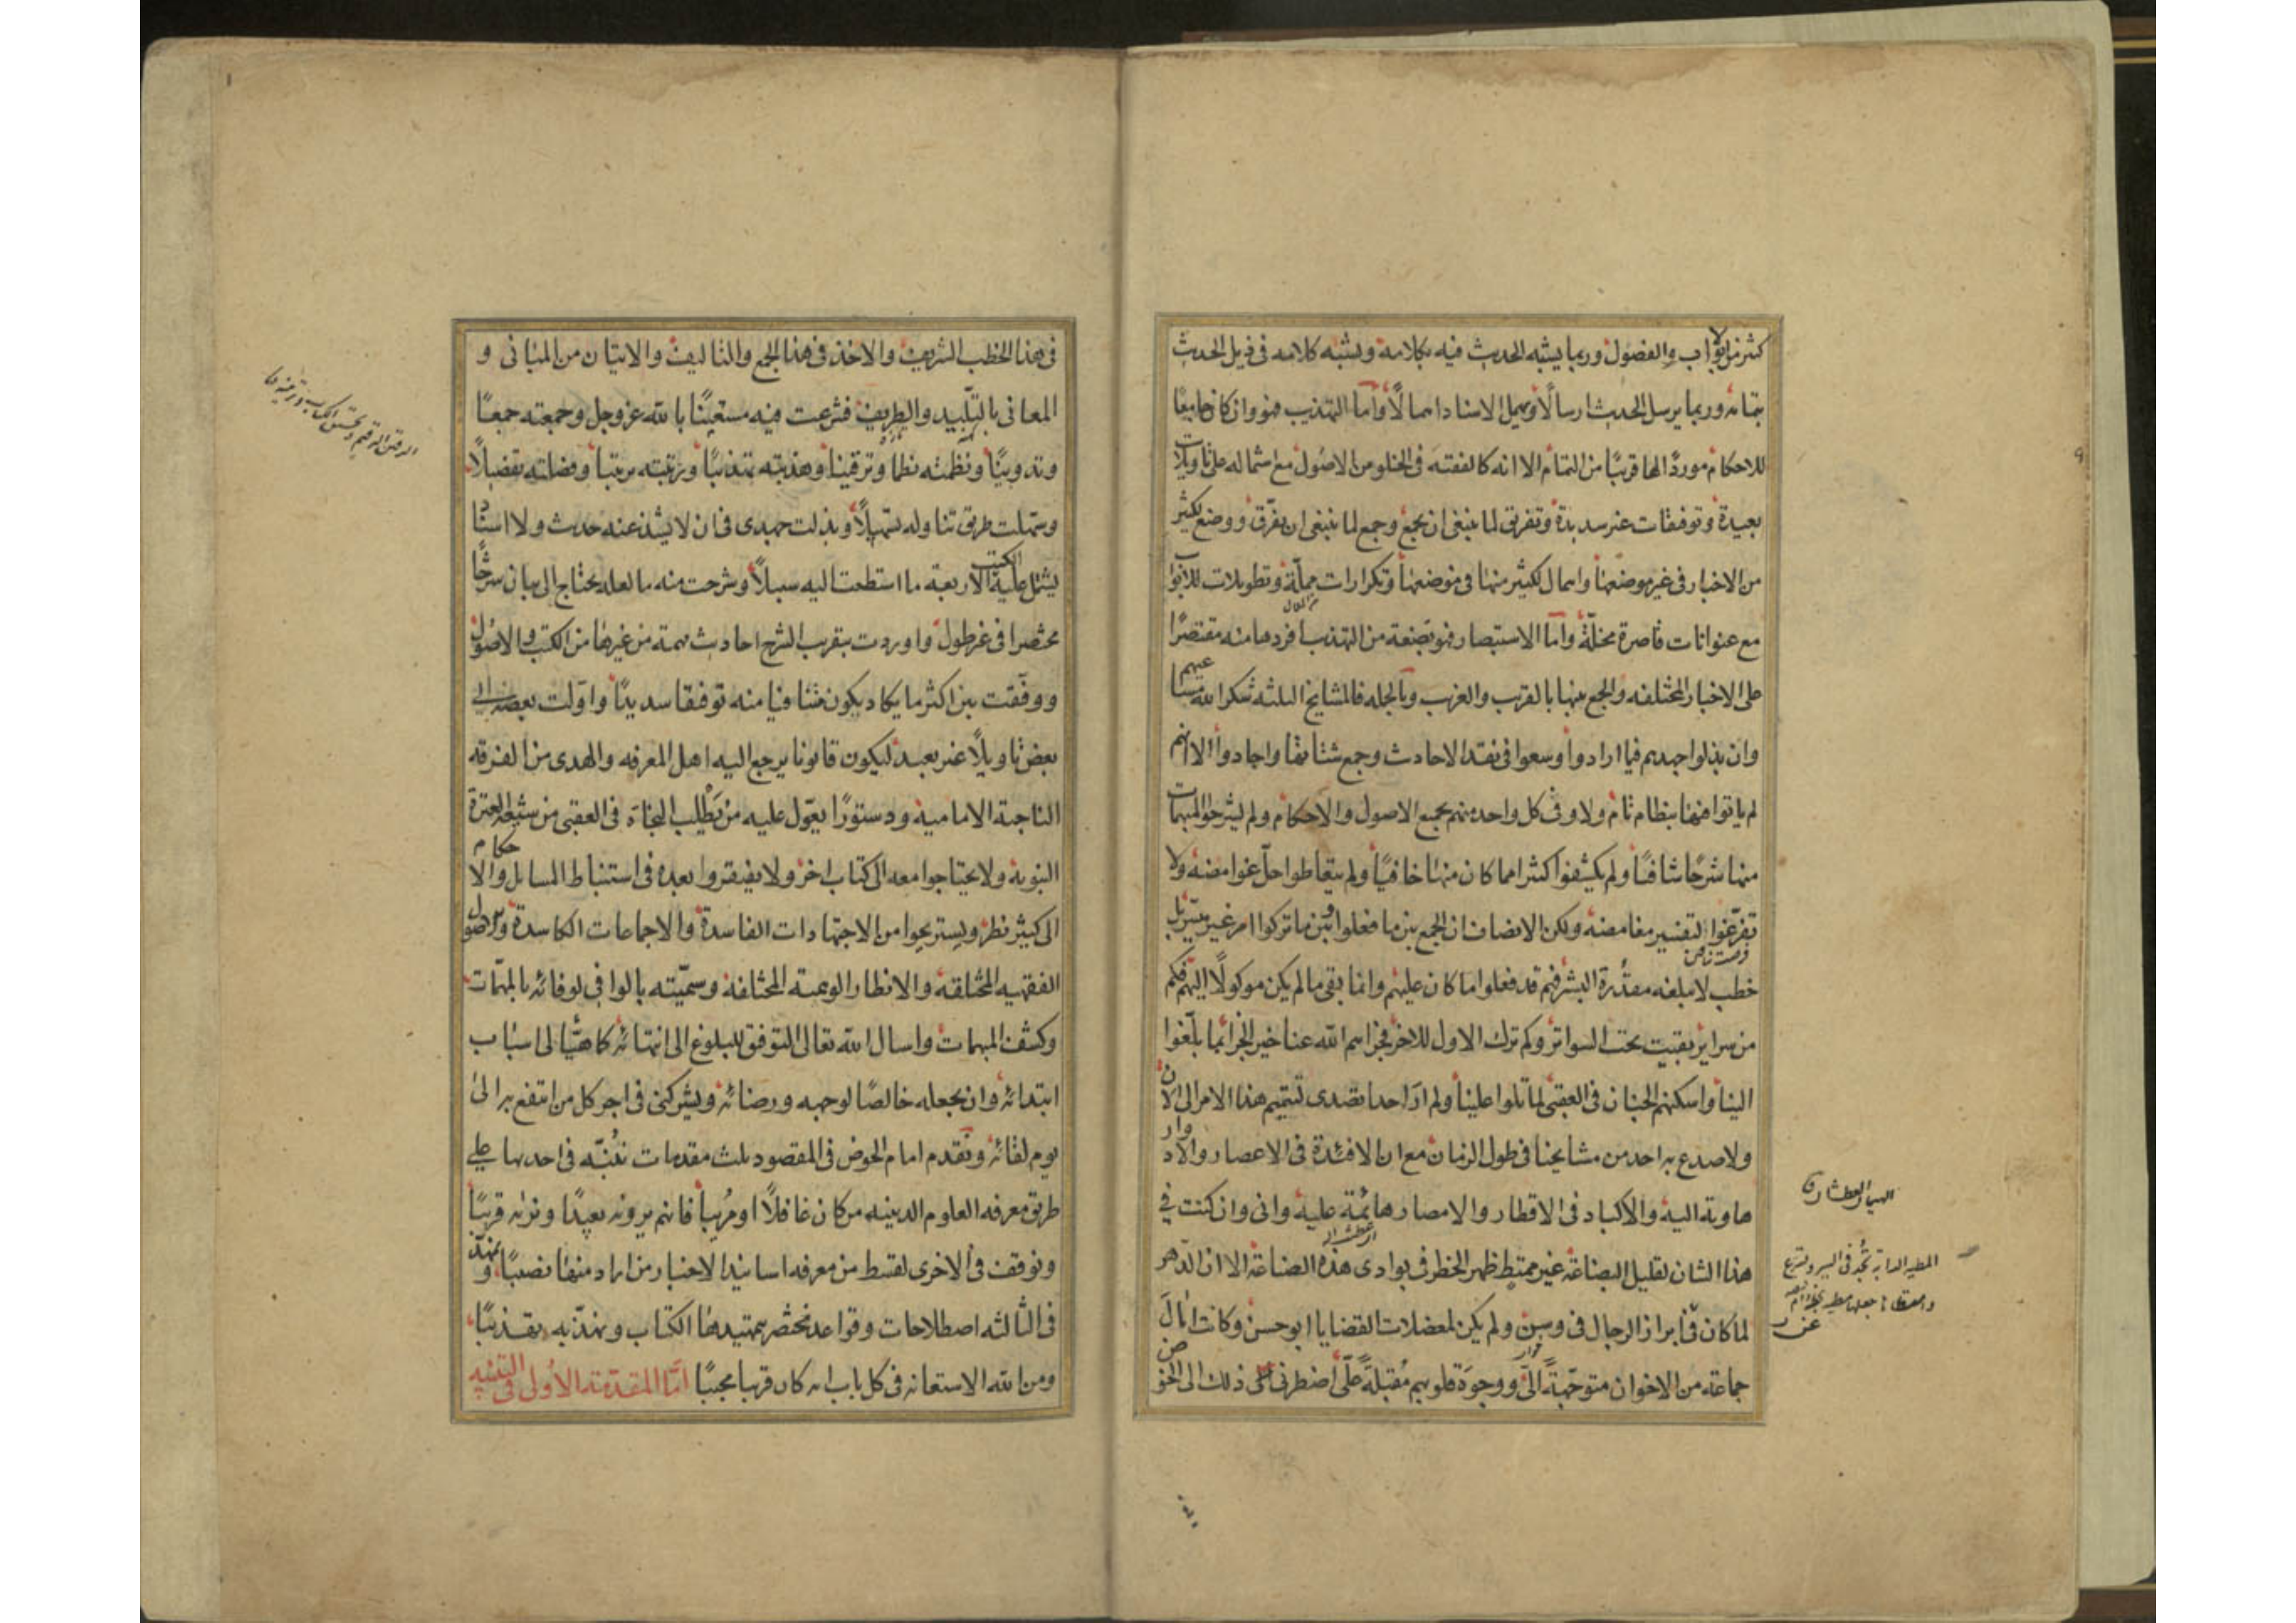 كثير من الأبواب والفصول وربما يشبه الحديث فيه بكلامه ويشبه كلامه في ذيل الحديث
بتمامه وربما يرسل الحديث ارسالًا ويهمل الاسناد اهمالًا وأما التهذيب فهو وان كان جامعًا
للاحكام موردًا لها قريبًا من التمام الا انه كالفقيه في الخلو من الاصول مع اشتماله على تأويلات
بعيدة وتوفيقات غير سديدة وتفريق لما ينبغي ان يجمع وجمع لما ينبغي ان يفرق ووضع لكثير
من الاخبار في غير موضعها واهمال لكثير منها في موضعها وتكرارات مملّة وتطويلات للابواب
مع عنوانات قاصرة مخلّة وأمّا الاستبصار فهو بضعة من التهذيب افردها منه مقتصرًا
على الاخبار المختلفه والجمع بينها بالقريب والغريب وبالجمله فالمشايخ الثلثه شكر الله سعيهم
وان بذلوا جهدهم فيما ارادوا وسعوا في نقد الاحاديث وجمع شتاتها واجادوا الا انهم
لم ياتوا فيها بنظام تام ولا وفى كل واحد منهم بجميع الاصول والاحكام ولم يشرحوا المبهمات
منها شرحًا شافيًا ولم يكشفوا كثيرا مما كان منها خافيًا ولم يتعاطوا حلّ غوامضه ولا
تفرّغوا لتفسير مغامضه ولكن الانصاف ان الجمع بين ما فعلوا وبين ما تركوا امر غير ميسّر بل
خطب لا مبلغه مقدُرة البشر فهم قد فعلوا ما كان عليهم وانما بقي ما لم يكن موكولًا اليهم فكم
من سرائر بقيت تحت السواتر وكم ترك الاول للاخر فجزاهم الله عنا خير الجزاء بما بلّغوا
الينا واسكنهم الجنان في العقبى لما تلوا علينا ولم ار احدا تصدى لتتميم هذا الامر الى الان
ولا صدع به احد من مشايخنا في طول الزمان مع ان الافئدة في الاعصار والادوار
هاوية اليه والاكباد في الاقطار والامصار هائمة عليه واني وان كنت في
هذا الشان لقليل البضاعة غير ممتط ظهر الخطر في بوادي هذه الصناعة الا ان الدّهر
لما كان في ابراز الرجال في وسن ولم يكن لمعضلات القضايا ابو حسن وكانت امال
جماعة من الاخوان متوجّهةً اليّ ووجوه قلوبهم مُقبلةً عليّ اضطرني ذلك الى الخوض
الهيام العطش
المطيه الدابة تجدّ في السير
في هذا الخطب الشريف والاخذ في هذا الجمع والتاليف والاتيان من المباني و
المعاني بالتّليد والطريف فشرعت فيه مستعينًا بالله عز وجل وجمعته جمعًا
وتدوينًا ونظمته نظما وترقينا وهذبته تهذيبًا ورتبته ترتيبا وفصلته تفصيلًا
وسهلت طريق تناوله تسهيلًا وبذلت جهدي في ان لا يشذ عنه حديث ولا اسناد
يشتمل عليه الكتب الاربعة ما استطعت اليه سبيلًا وشرحت منه ما لعله يحتاج الى بيان شرحًا
مختصرا في غير طول واوردت بتقريب الشرح احاديث مهمة من غيرها من الكتب والاصول
ووفّقت بين اكثر ما يكاد يكون متنافيا منه توفيقا سديدًا واوّلت بعضه الى
بعض تاويلًا غير بعيد ليكون قانونا يرجع اليه اهل المعرفه والهدى من الفرقه
الناجية الامامية ودستورًا يعوّل عليه من يَطْلب النجاة في العقبى من شيعة العترة
النبوية ولا يحتاجوا معه الى كتاب اخر ولا يفتقروا بعده في استنباط المسايل والاحكام
الى كثير نظر ويستريحوا من الاجتهادات الفاسدة والاجماعات الكاسدة والاصول
الفقهيه المختلقه والانظار الوهمية المختلفة وسمّيته بالوافي لوفائه بالمهمّات
وكشف المبهمات واسال الله تعالى التوفيق للبلوغ الى انتهائه كما هيّا لي اسباب
ابتدائه وان يجعله خالصًا لوجهه ورضائه ويشركني في اجر كل من انتفع به الى
يوم لقائه ونُقدم امام الخوض في المقصود ثلث مقدمات نُنبّه في احديها على
طريق معرفه العلوم الدينيه من كان غافلًا او مُريبا فانهم يرونه بعيدًا ونراه قريبًا
ونوقف في الاخرى لقسط من معرفه اسانيد الاخبار من اراد منها نصيبًا ونمهّد
في الثالثه اصطلاحات وقواعد نختصر بتمهيدها الكتاب ونهذّبه تهذيبًا
ومن الله الاستعانه في كل باب انه كان قريبا مجيبًا امّا المقدّمة الأولى في التنبيه